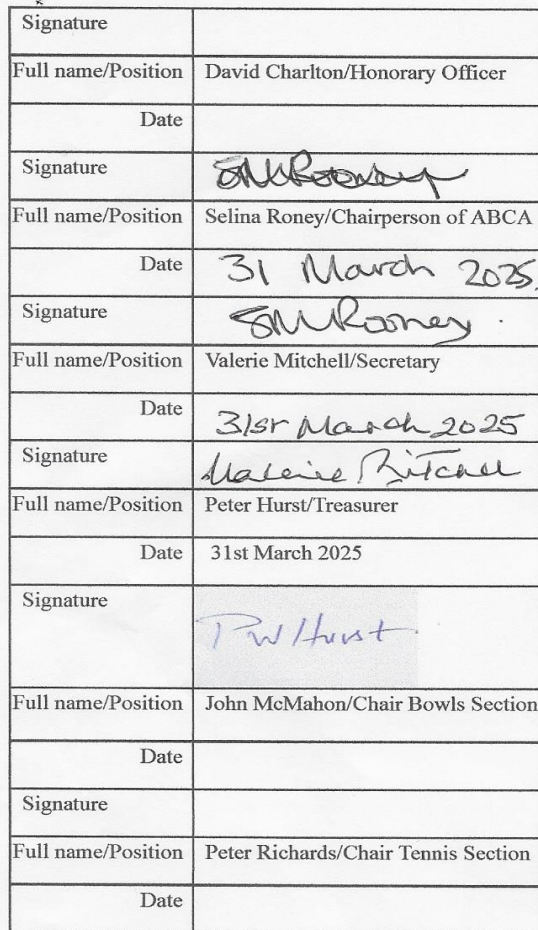 Signature
Full name/Position David Charlton/Honorary Officer
Date
Signature SMRooney
Full name/Position Selina Roney/Chairperson of ABCA
Date 31 March 2025.
Signature SMRooney
Full name/Position Valerie Mitchell/Secretary
Date 31st March 2025
Signature Valerie Mitchell
Full name/Position Peter Hurst/Treasurer
Date 31st March 2025
Signature PW Hurst
Full name/Position John McMahon/Chair Bowls Section
Date
Signature
Full name/Position Peter Richards/Chair Tennis Section
Date